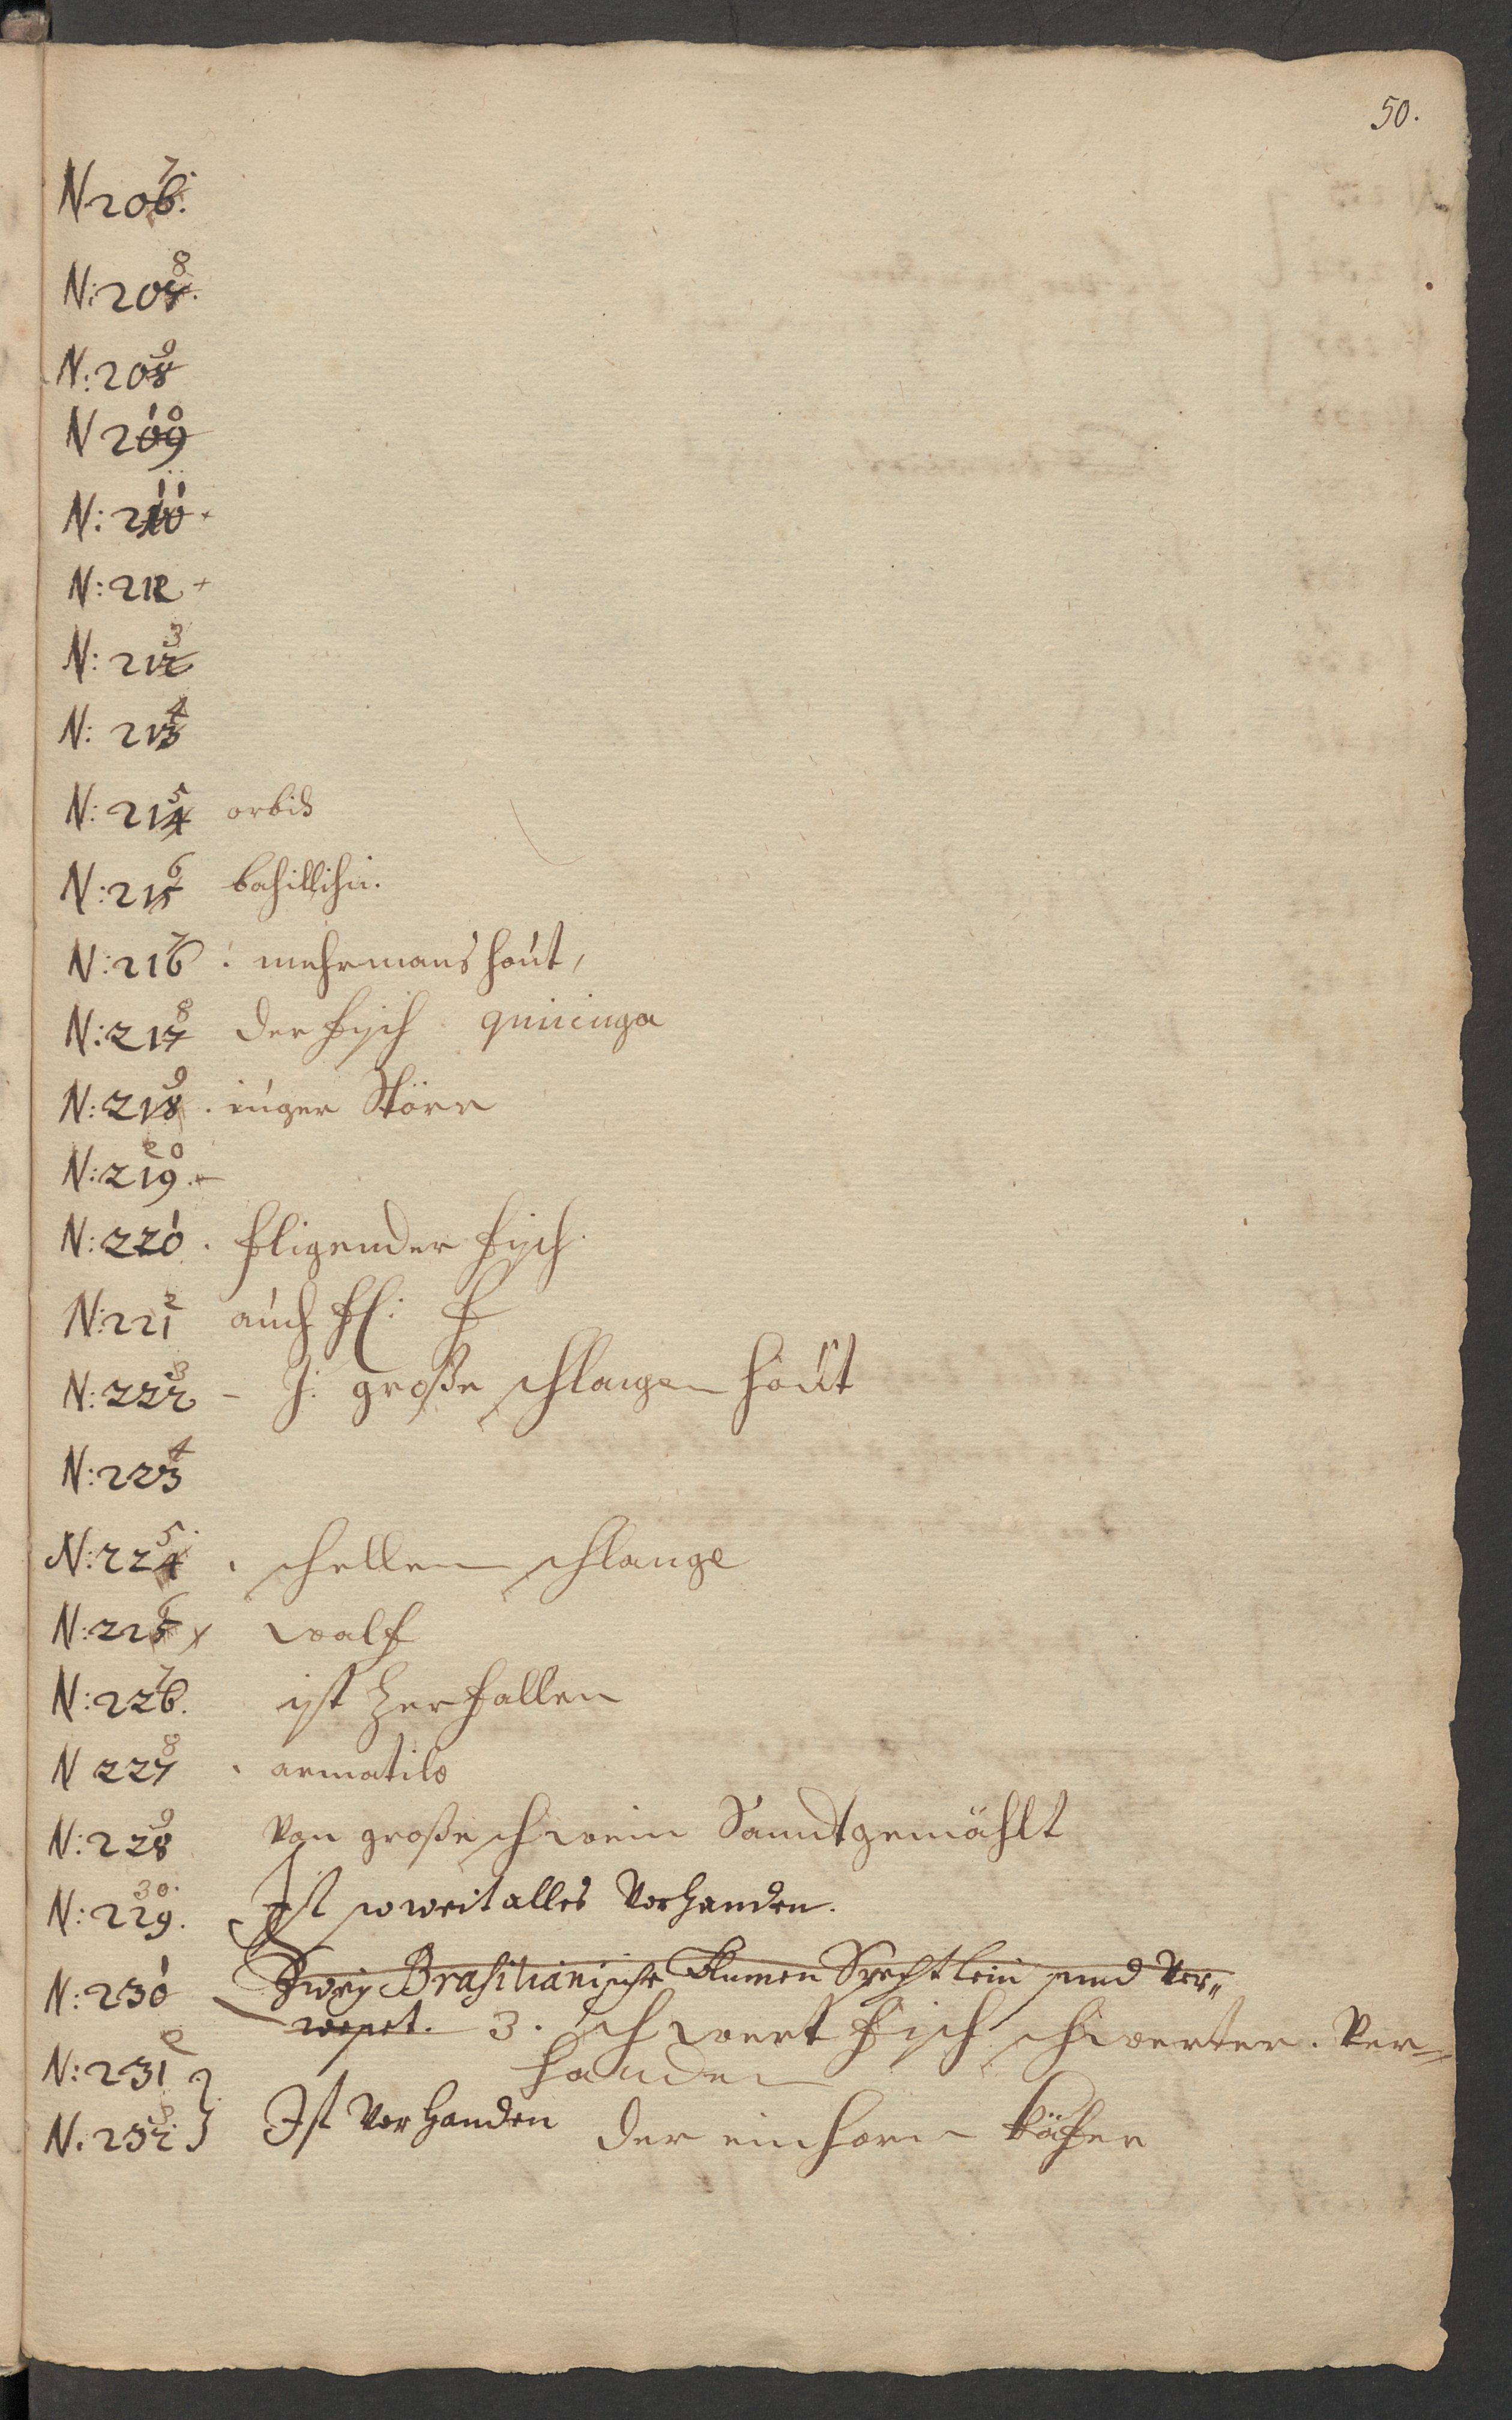 50.
N 206. 7.
N: 207. 8
N: 208 9
N 209 10
N: 210 11 +
N: 212 +
N: 212 3
N: 213 4
N: 214 5 orbis
N: 215 6 basillisci.
N: 216 7 : mehrmans haut,
N: 217 8 der fisch
N: 218 9 . iunger Störr
N: 219. 20
N: 220 1 . fligender fisch.
N: 221 2 auch fl: f
N: 222 3 - J: große schlangen haut
N: 223 4
N: 224 5. . schellen schlange
N: 225 6 x walf
N: 226. 7 ist zerfallen
N 227 8 . armatilo
N: 228 9 Von große schwein gemählt
N: 229. 30. Ist so weit alles Vorhanden.
N: 230 1 Zwey Brasilianische Blumen Spechtlein sind Ver„
weset. 3. schwert fisch schwerter. Ver=
N: 231 2 handen
N. 232 3. Ist Vorhanden der einhorn käfer